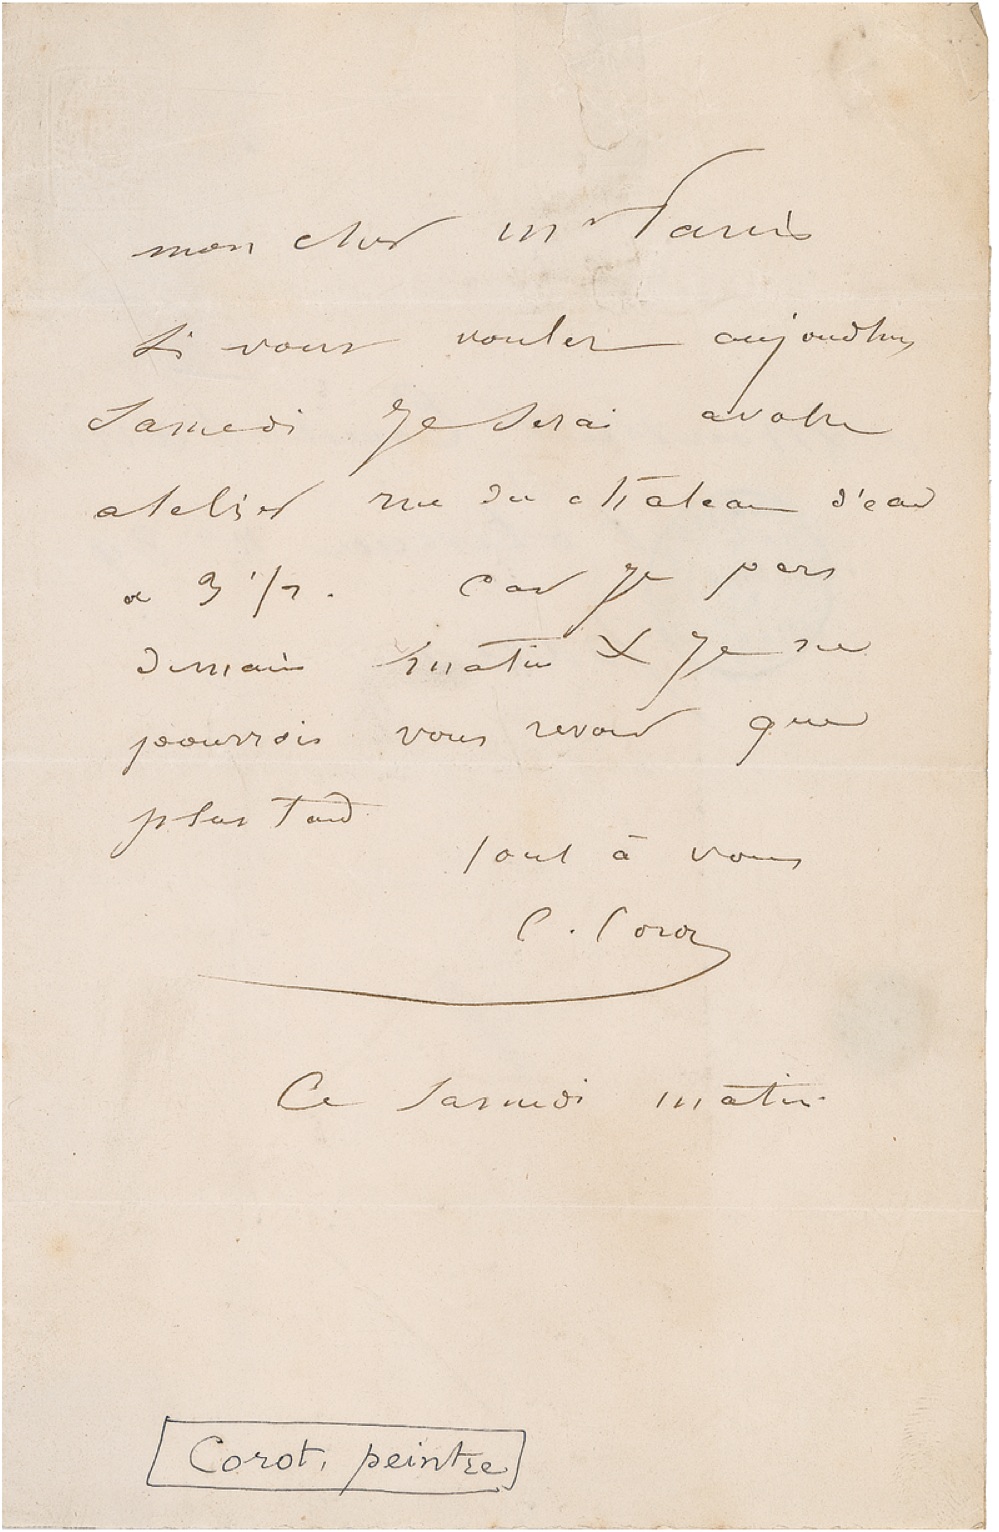 mon cher mr
si vous voulez aujoudhuy
Samedi Je Serai avotre
atelier rue du chateau d'eau
a 3 1/2. Car je pars
demain matin & Je ne
pourrois vous revoir que
plus tard
tout à vous
C. Corot
Ce Samedi matin
Corot, peintre